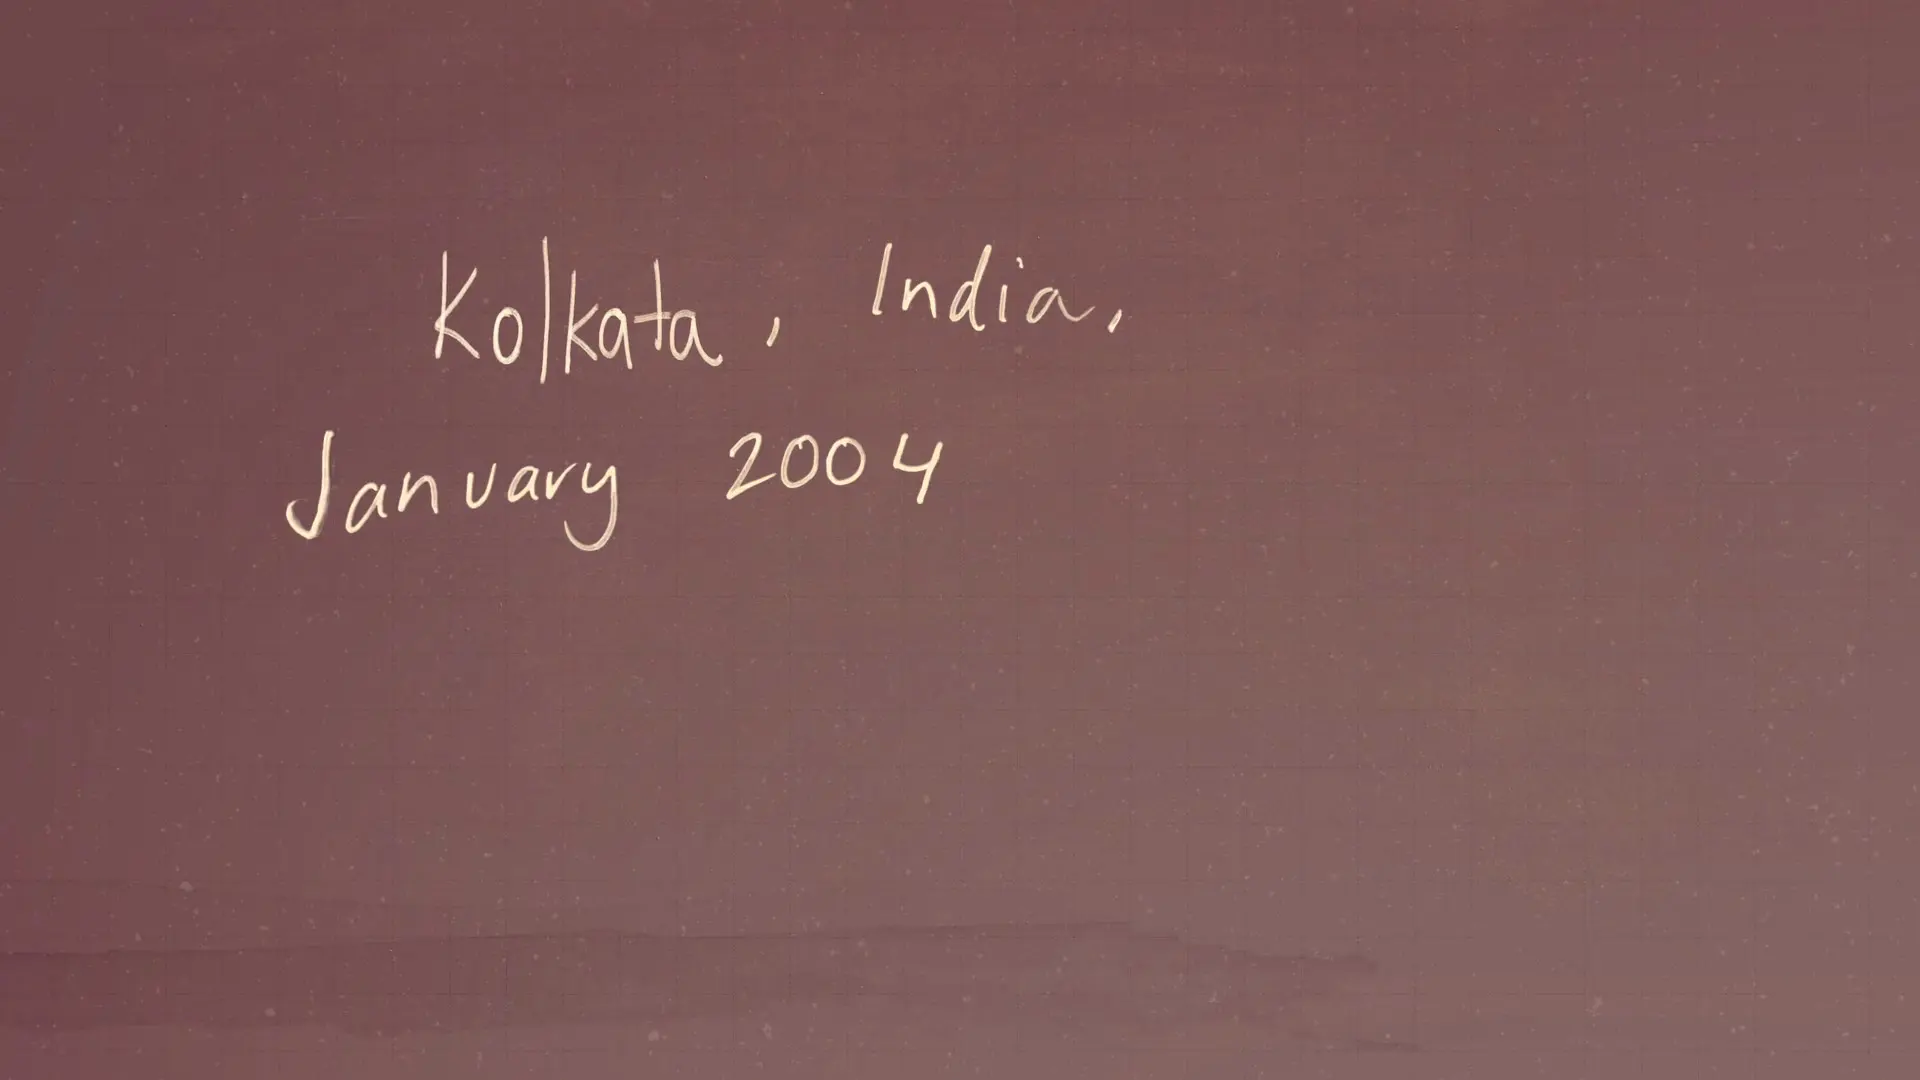 Kolkata, India,
January 2004